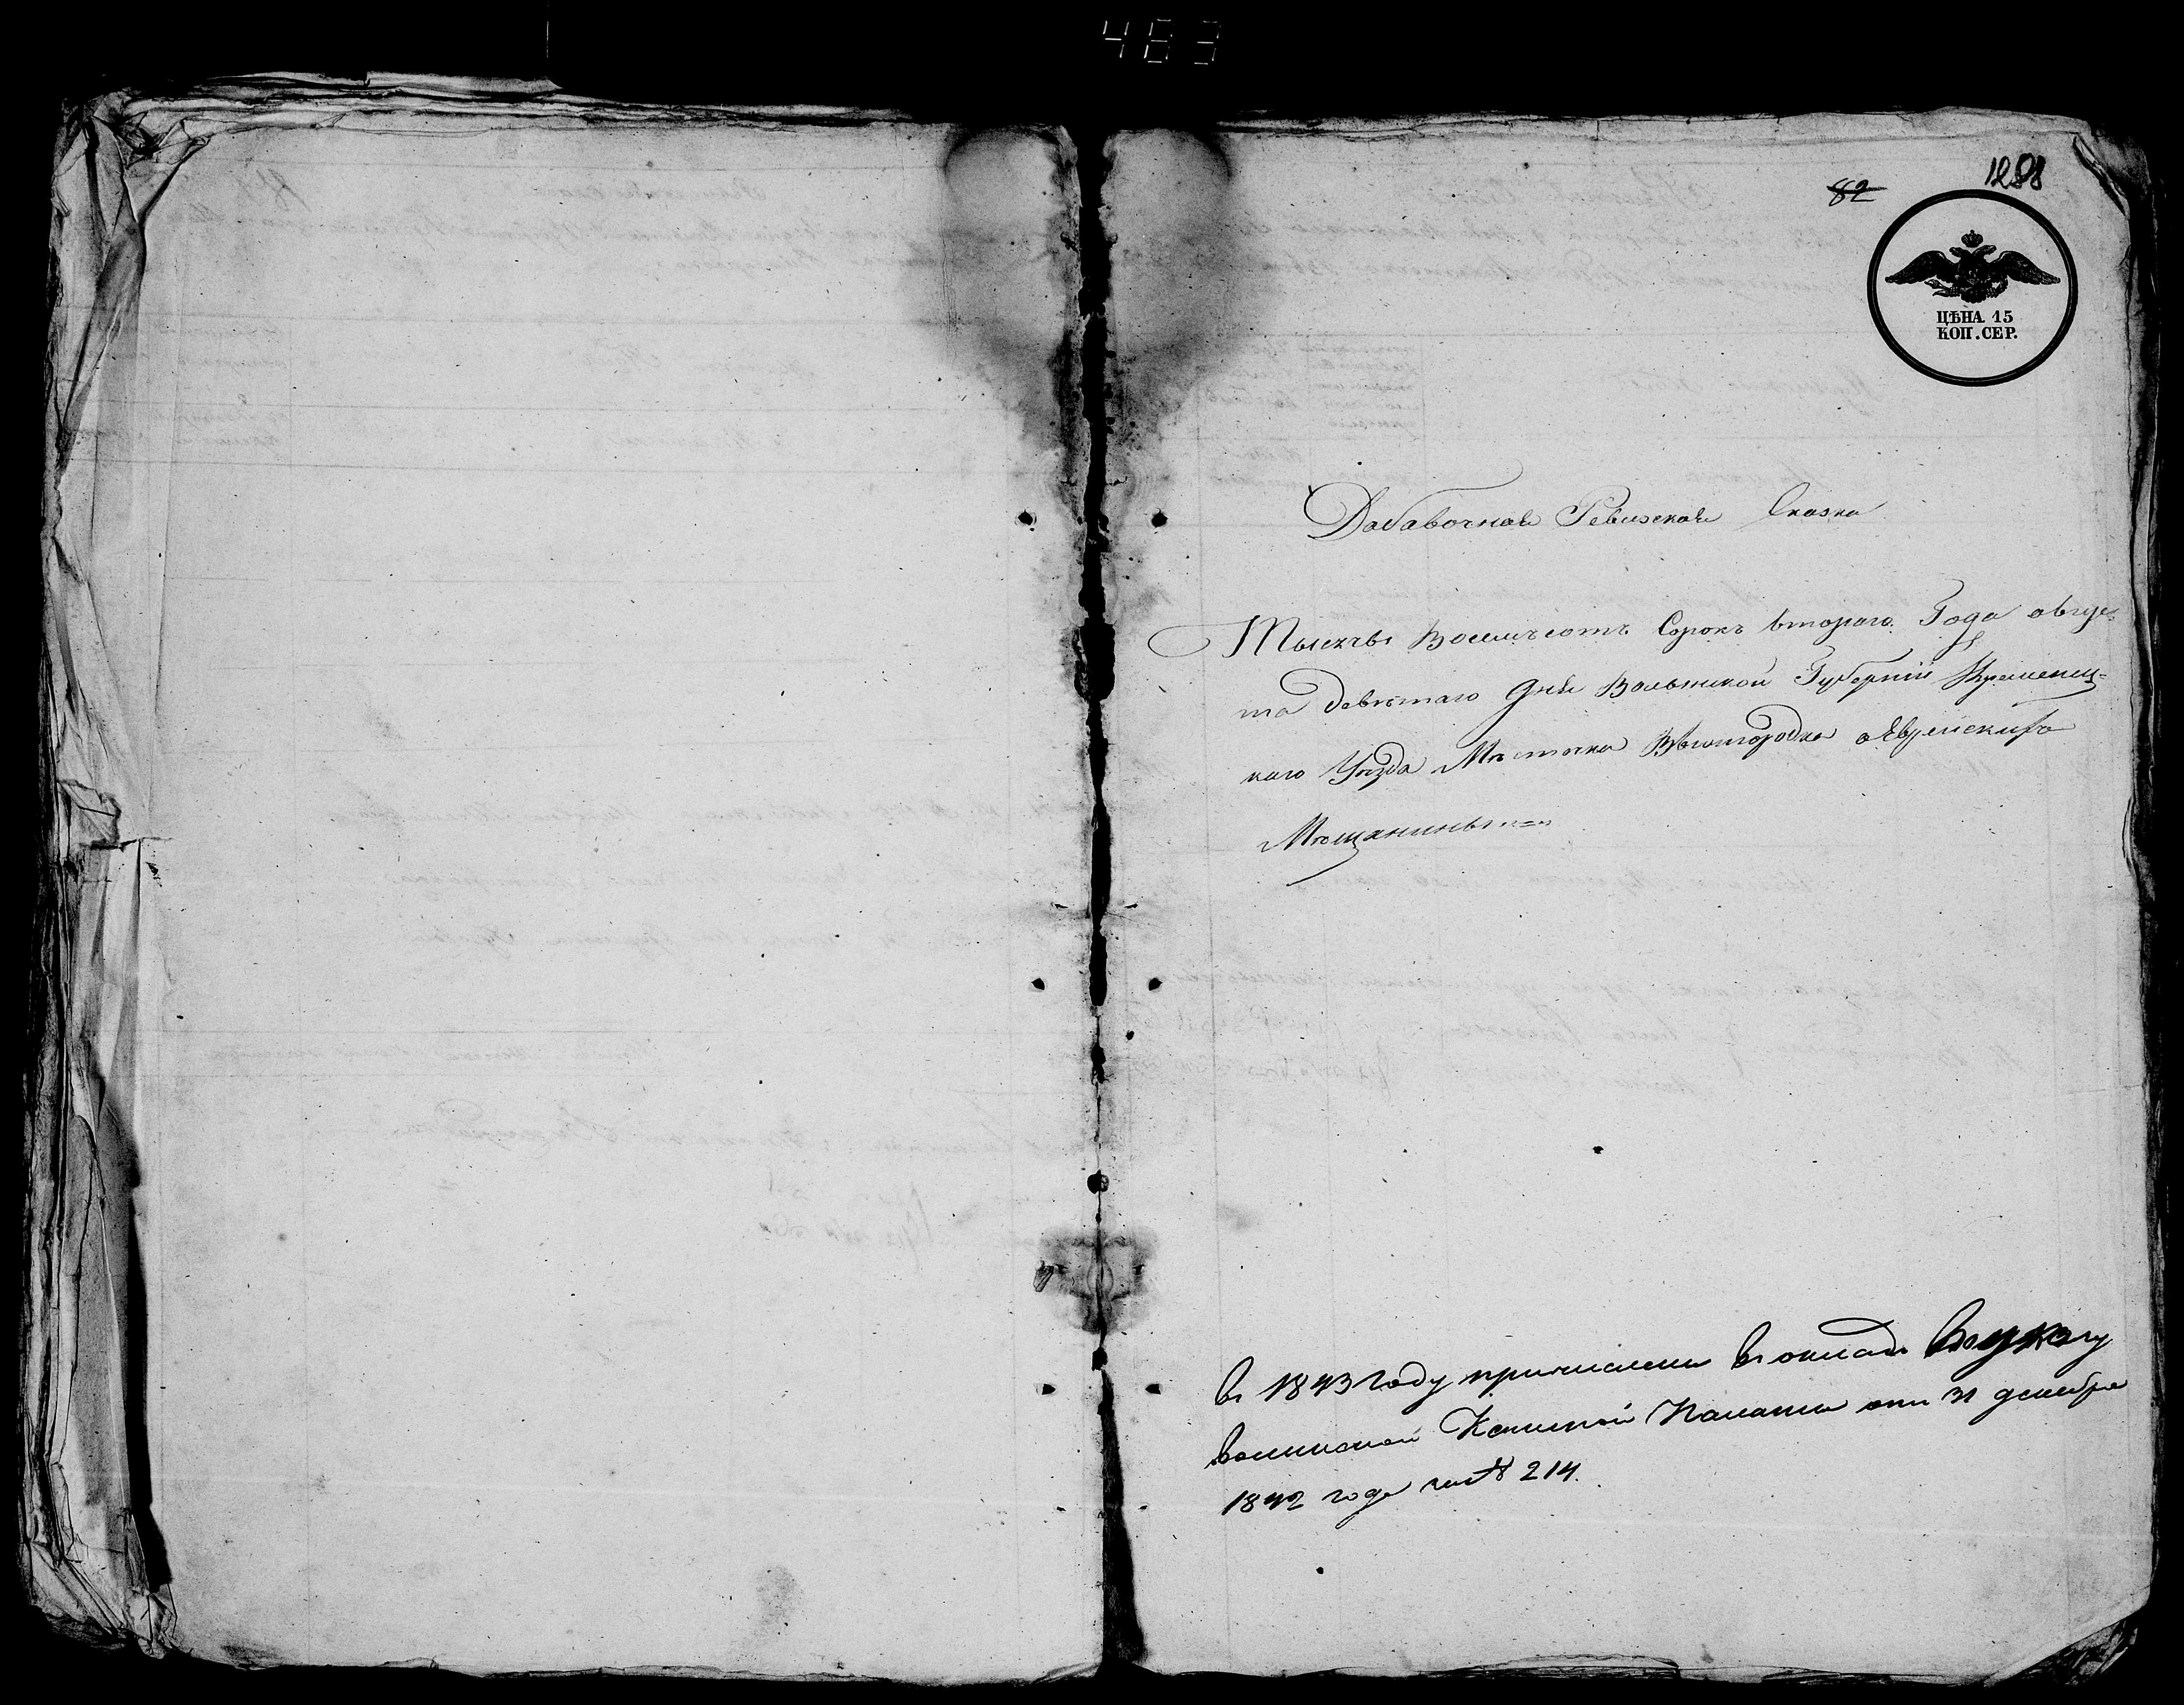 463
82
1288
ЦѢНА 15
КОП. СЕР.
Добавочная Ревизская Сказка
Тысяча Восемьсотъ Сорокъ втораго Года авгус-
та девятаго дня Волынской Губернии Кременец-
каго Уѣзда Мѣстечка Вышгородка о Еврейскихъ
Мѣщанинъ
въ 1843 году причислены въ окладъ по указу
волынской Казенной Палаты отъ 31 декабря
1842 года за № 214.